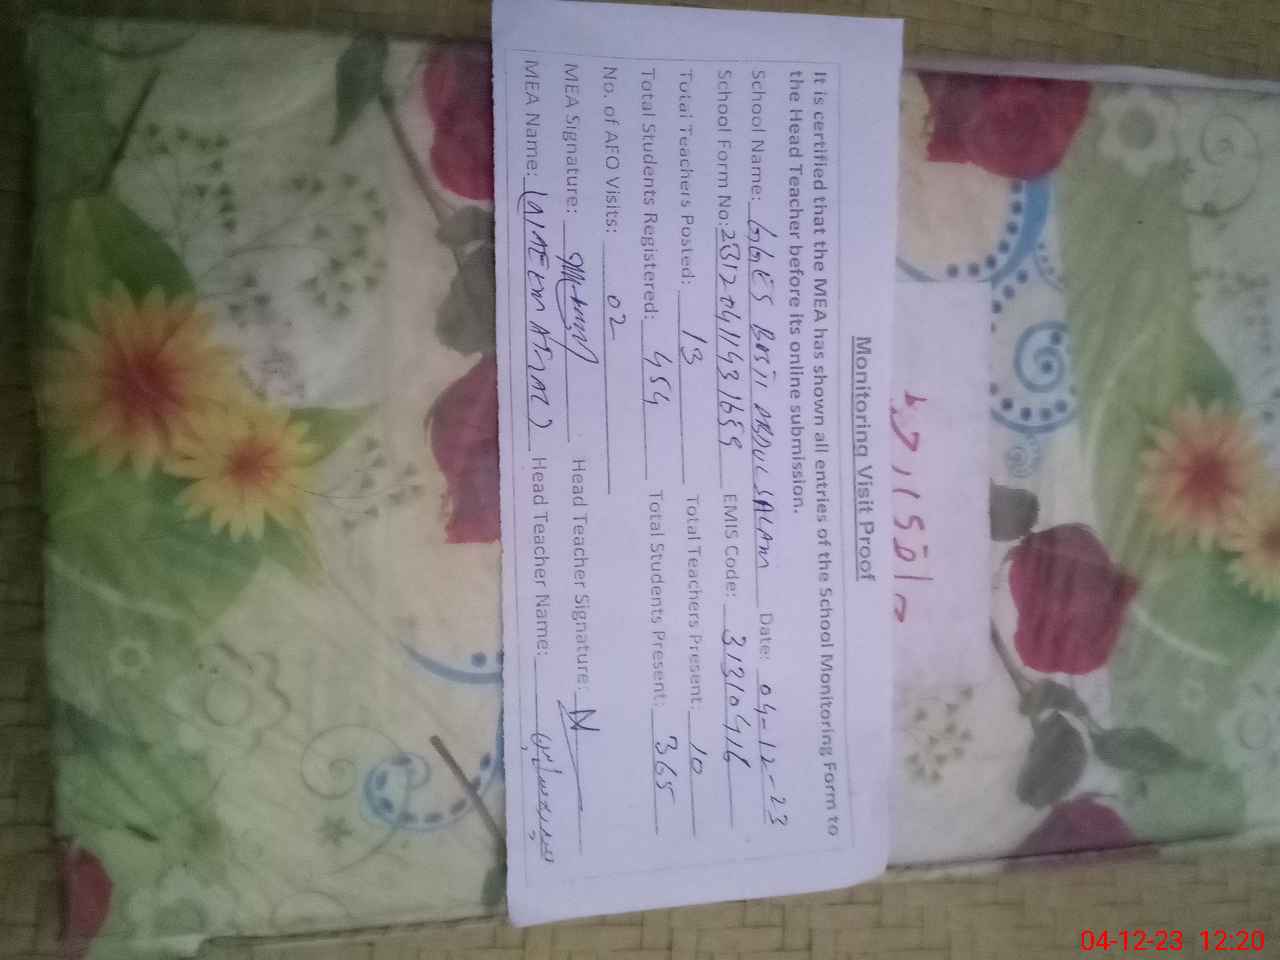 Monitoring Visit Proof
It is certified that the MEA has shown all entries of the School Monitoring Form to
the Head Teacher before its online submission.
School Name: GGES BASTI ABDUL SALAM Date: 04-12-23
School Form No: EMIS Code: 31310416
Total Teachers Posted: 13 Total Teachers Present: 10
Total Students Registered: 454 Total Students Present: 365
No. of AEO Visits: 02
MEA Signature: Head Teacher Signature:
MEA Name: Head Teacher Name:
04-12-23 12:20